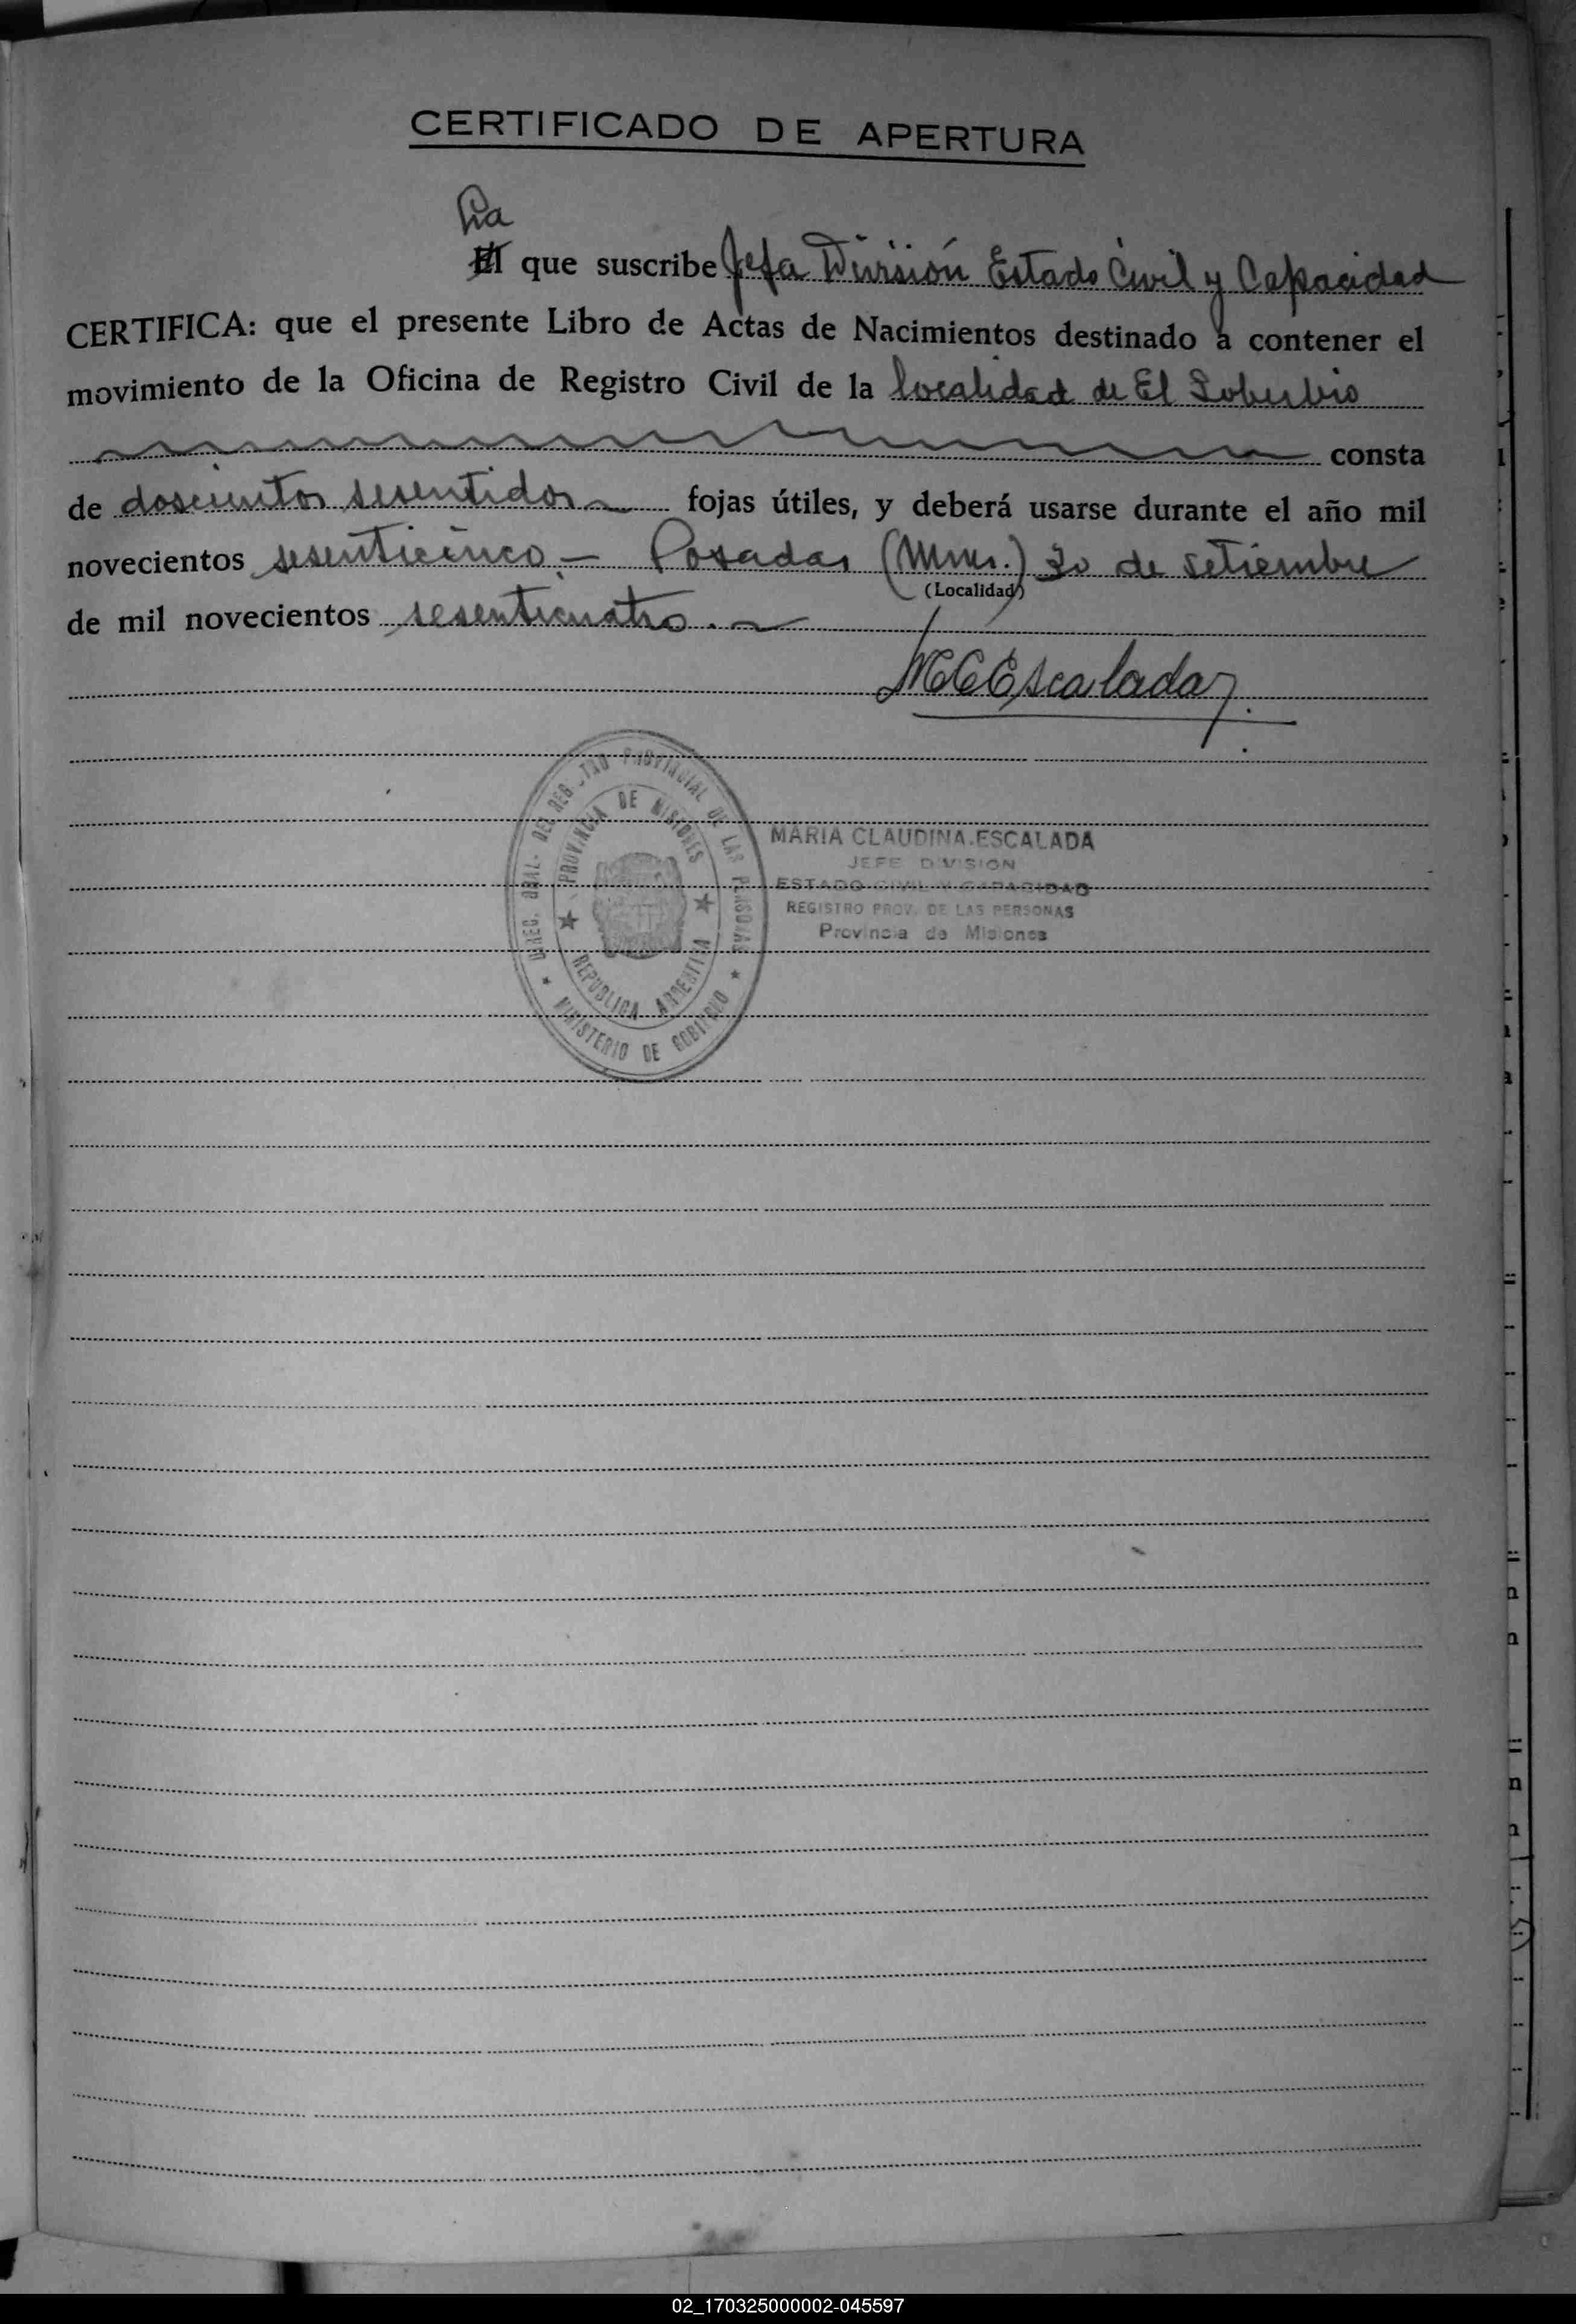 CERTIFICADO DE APERTURA
La
El que suscribe Jefa División Estado Civil y Capacidad
CERTIFICA: que el presente Libro de Actas de Nacimientos destinado a contener el
movimiento de la Oficina de Registro Civil de la localidad de El Soberbio
consta
de doscientos sesentidos fojas útiles, y deberá usarse durante el año mil
novecientos sesenticinco.- Posadas (Mnes.) 30 de setiembre
(Localidad)
de mil novecientos sesenticuatro.
MCEscalada
DIREC. GRAL. DEL REGISTRO PROVINCIAL DE LAS PERSONAS
PROVINCIA DE MISIONES
REPUBLICA ARGENTINA
MINISTERIO DE GOBIERNO
MARIA CLAUDINA ESCALADA
JEFE DIVISION
ESTADO CIVIL Y CAPACIDAD
REGISTRO PROV. DE LAS PERSONAS
Provincia de Misiones
02_170325000002-045597